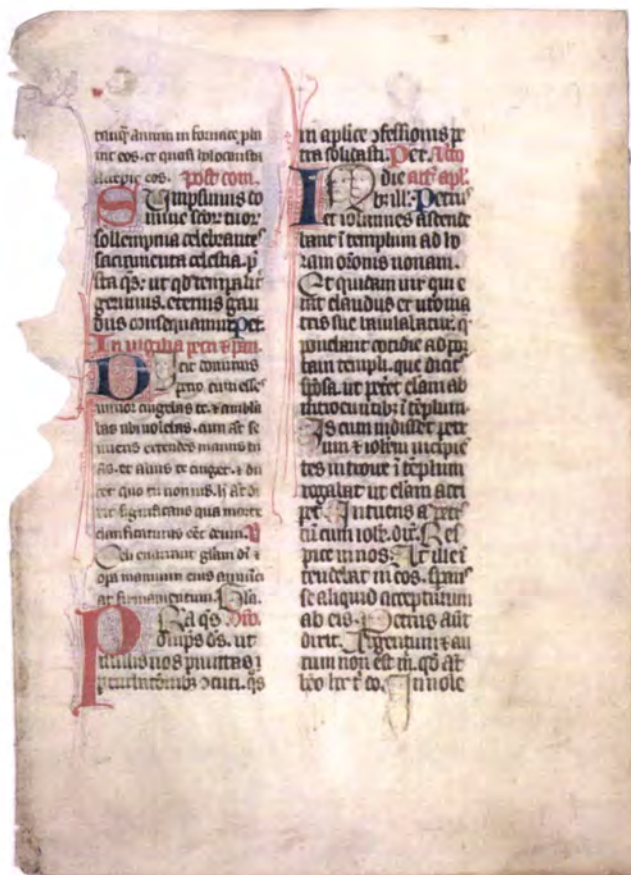 tanq̃ aurum in fornace
uit eos. et quasi holocausti
eos. post com.
Sumpsimus do
mine scoꝝ tuoꝝ
sollempnia celebrantes
sacramenta celestia. p̄
sta q̄s. ut qd̄ tempalit̾
gerimus. eternis gau
diis consequamur. Per
In vigilia petri ⁊ pau.
Dicit dominus
petro. cum esses
iunior cingebas te. ⁊ ambula
bas ubi uolebas. cum at̄ se
nueris extendes manus tu
as. et alius te cinget. ⁊ du
cet quo tu non uis. h̄ at̄ di
xit significans qua morte
clarificaturus eēt deum. V
Celi enarrant gl̄am dī ⁊
opa manuum eius annūci
at firmamentum. Gl̄a.
PRa q̄s. Oro.
om̄ps d̄s. ut
nullis nos pmittas

in aplice ɔfessionis pe
tra solidasti. Per. Lcō
act̾ apl.
IN dieb̾ ill. Petrus
et iohannes ascende
bant ī templum ad ho
ram orōnis nonam.
Et quidam uir qui e
rat claudus ex utero ma
tris sue baiulabatur. q̄
ponebant cotidie ad por
tam templi. que dicit̾
spōsa. ut peteret elām ab
introeuntib̾ ī tēplum.
Is cum uidisset petr
um ⁊ ioh̄em incipiē
tes introire ī tēplum
rogabat ut elām acci
pet. Intuens at̄ petr̾
eū cum ioh̄e. dix̄. Res
pice in nos. At ille ī
tendebat in eos. sperans
se aliquid accepturum
ab eis. Petrus aūt
dixit. Argentum ⁊ au
rum non est m̄. qd̄ at̄
h̄eo hoc t̄ do. In noīe